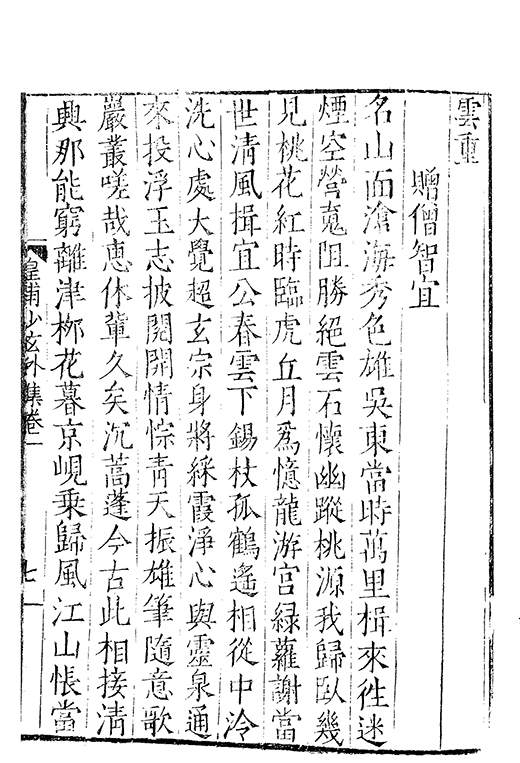 雲重
贈僧智宜
名山面滄海秀色雄吳東當時萬里楫來徃迷
煙空營蒐阻勝絕雲石懷幽蹤桃源我歸臥幾
見桃花紅時臨虎丘月為憶龍游宮緑蘿謝當
世清風揖宜公春雲下錫杖孤鶴遙相從中泠
洗心處大覺超玄宗身將綵霞淨心與靈泉通
來投浮玉志披閱開情悰青天振雄筆隨意歌
巖叢嗟哉惠休輩久矣沉蒿蓬今古此相接清
興那能窮離津柳花暮京峴乗歸風江山悵當
皇甫少玄外集卷一
七